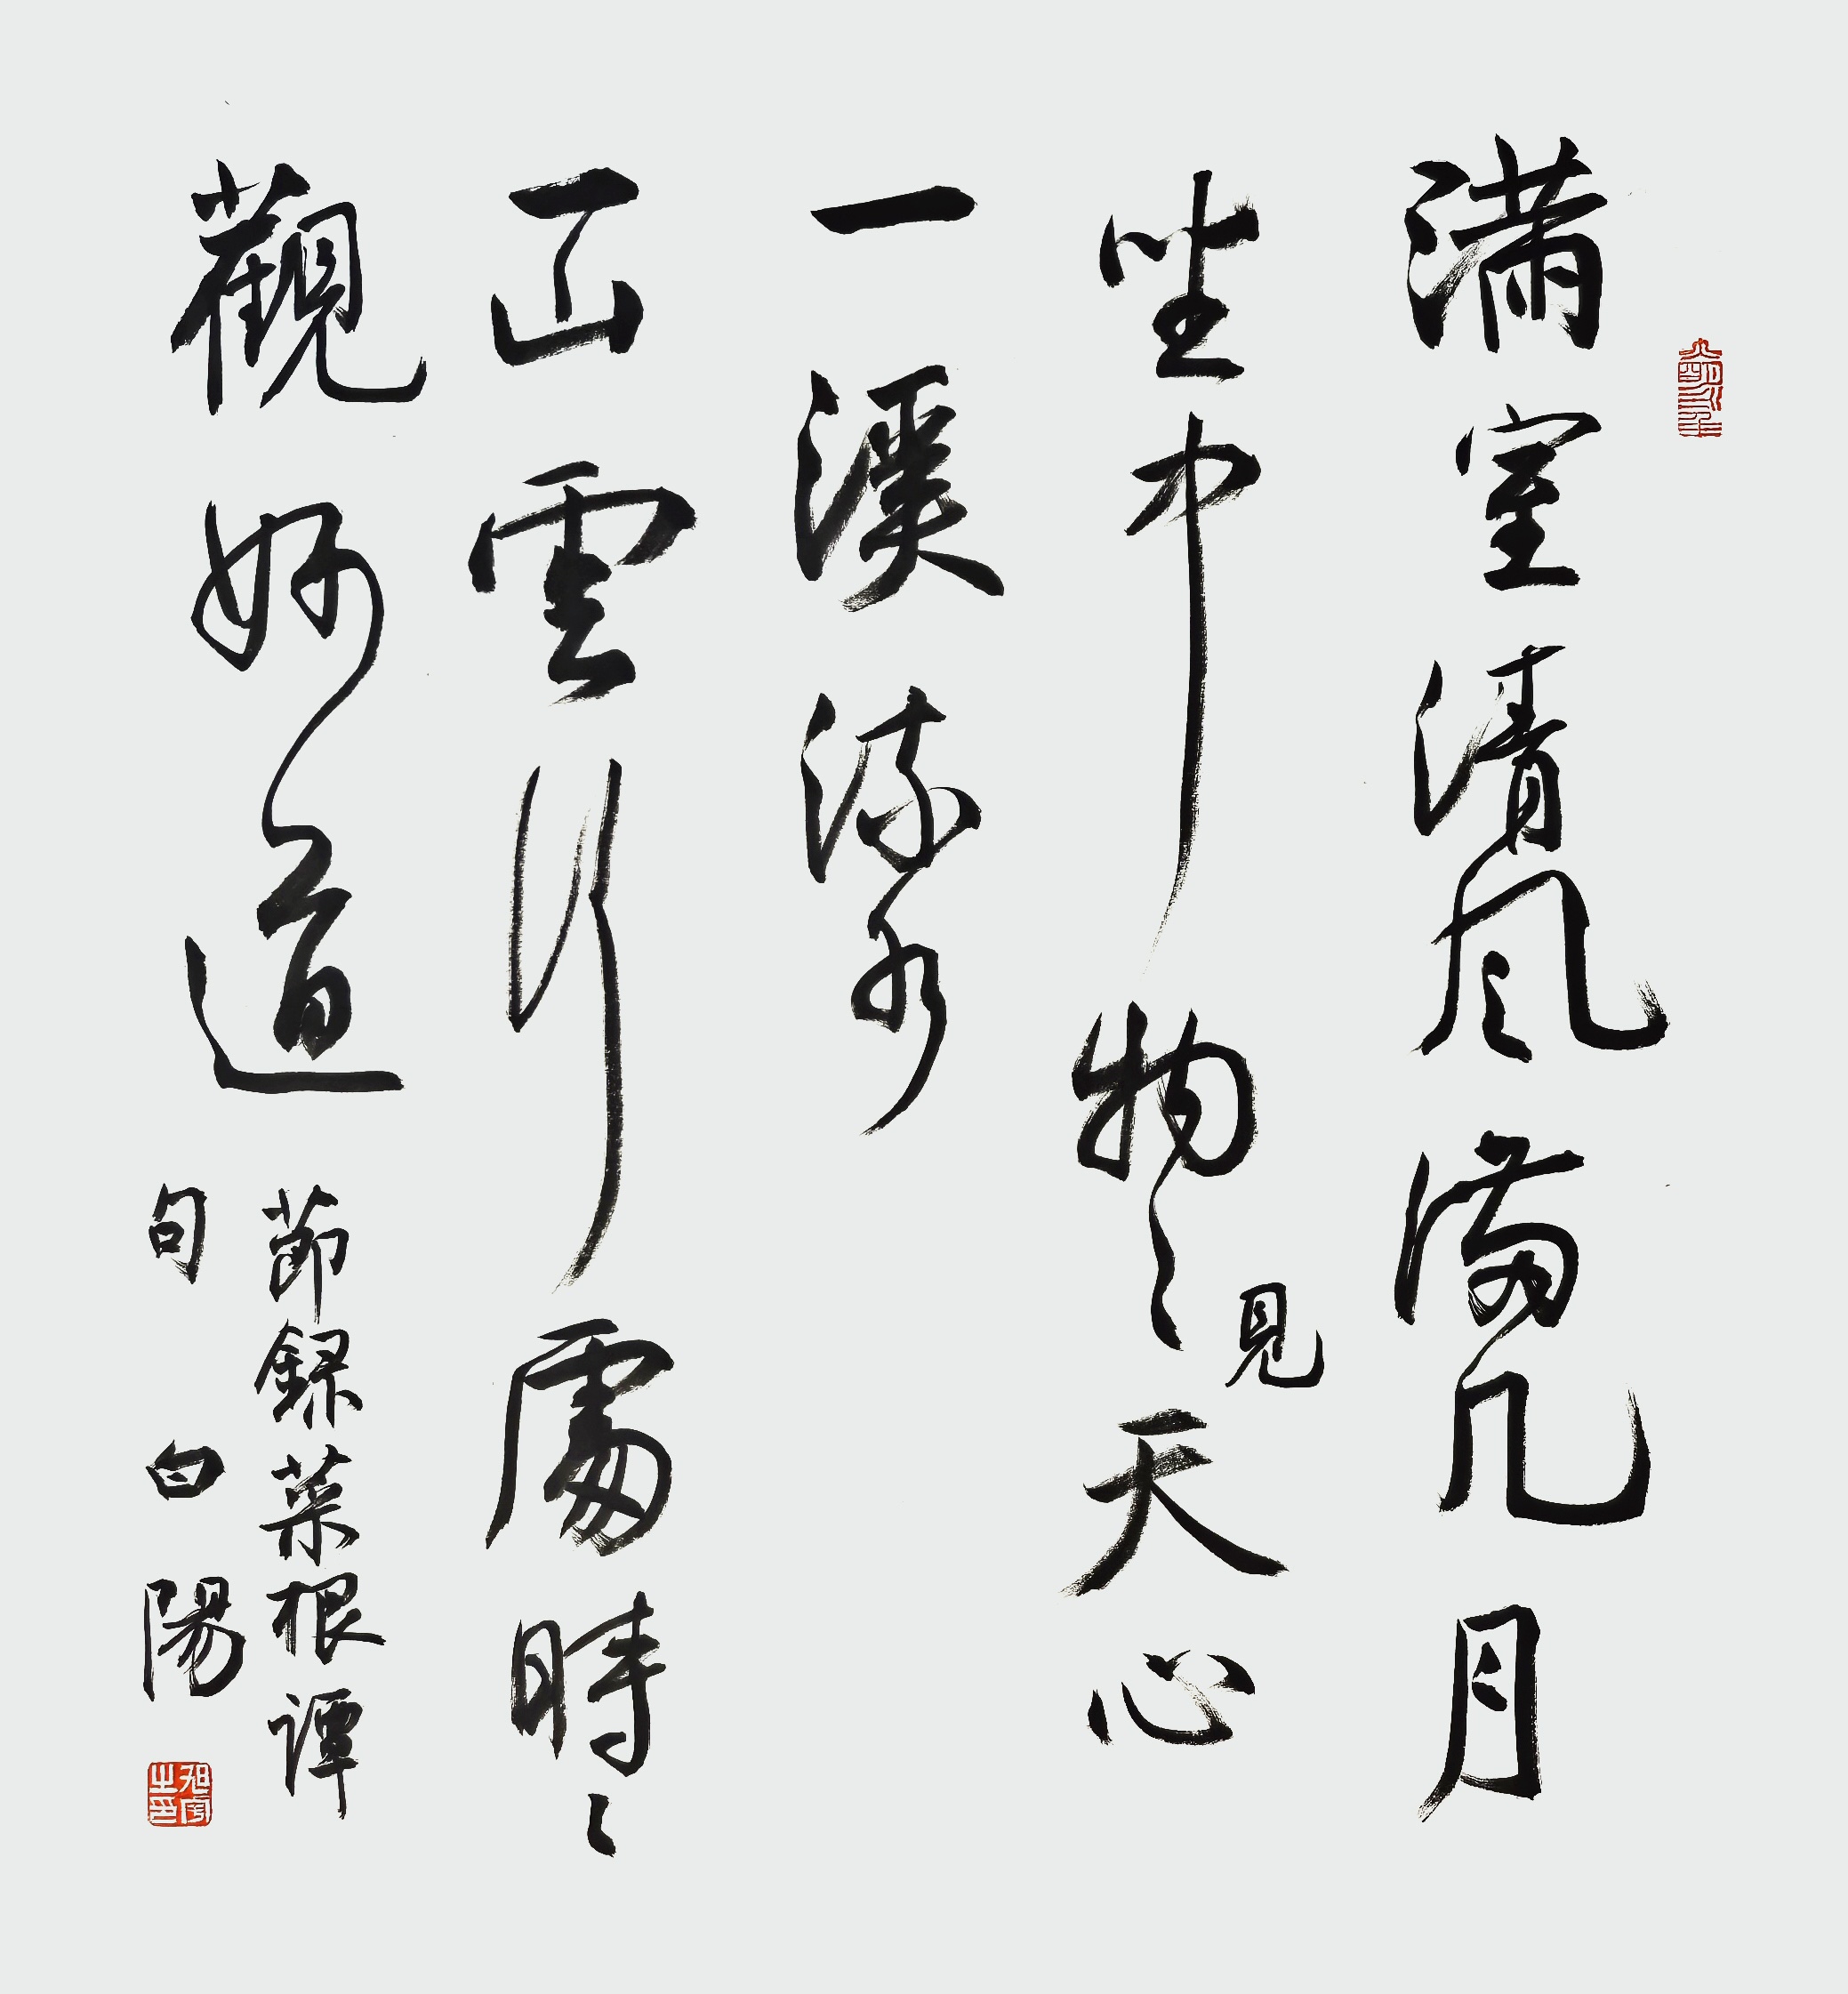 滿室清風滿几月
坐中物〻見天心
一溪流水
一山雲行處時〻
觀妙道
節録菜根譚
句 白陽